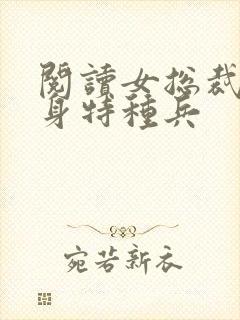 閱讀女总裁
身特種兵
宛若新衣